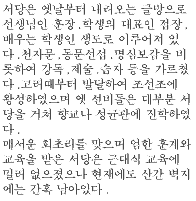 서당은 옛날부터 내려오는 글방으로
선생님인 훈장, 학생의 대표인 접장,
배우는 학생인 생도로 이루어져 있
다. 천자문, 동문선습, 명심보감을 비
롯하여 강독, 제술, 습자 등을 가르쳤
다. 고려때부터 발달하여 조선조에
왕성하였으며 옛 선비들은 대부분 서
당을 거쳐 향교나 성균관에 진학하였
다.
매서운 회초리를 맞으며 엄한 훈계와
교육을 받은 서당은 근대식 교육에
밀려 없으졌으나 현재에도 산간 벽지
에는 간혹 남아있다.